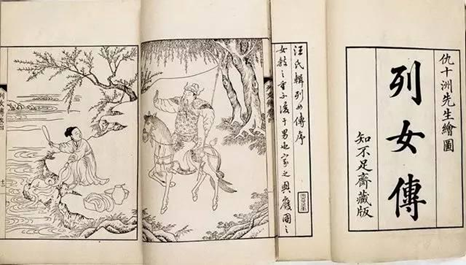 仇十洲先生繪圖
列女傳
知不足齋藏版
汪氏輯列女傳序
女教之重後于男也家之興廢國之